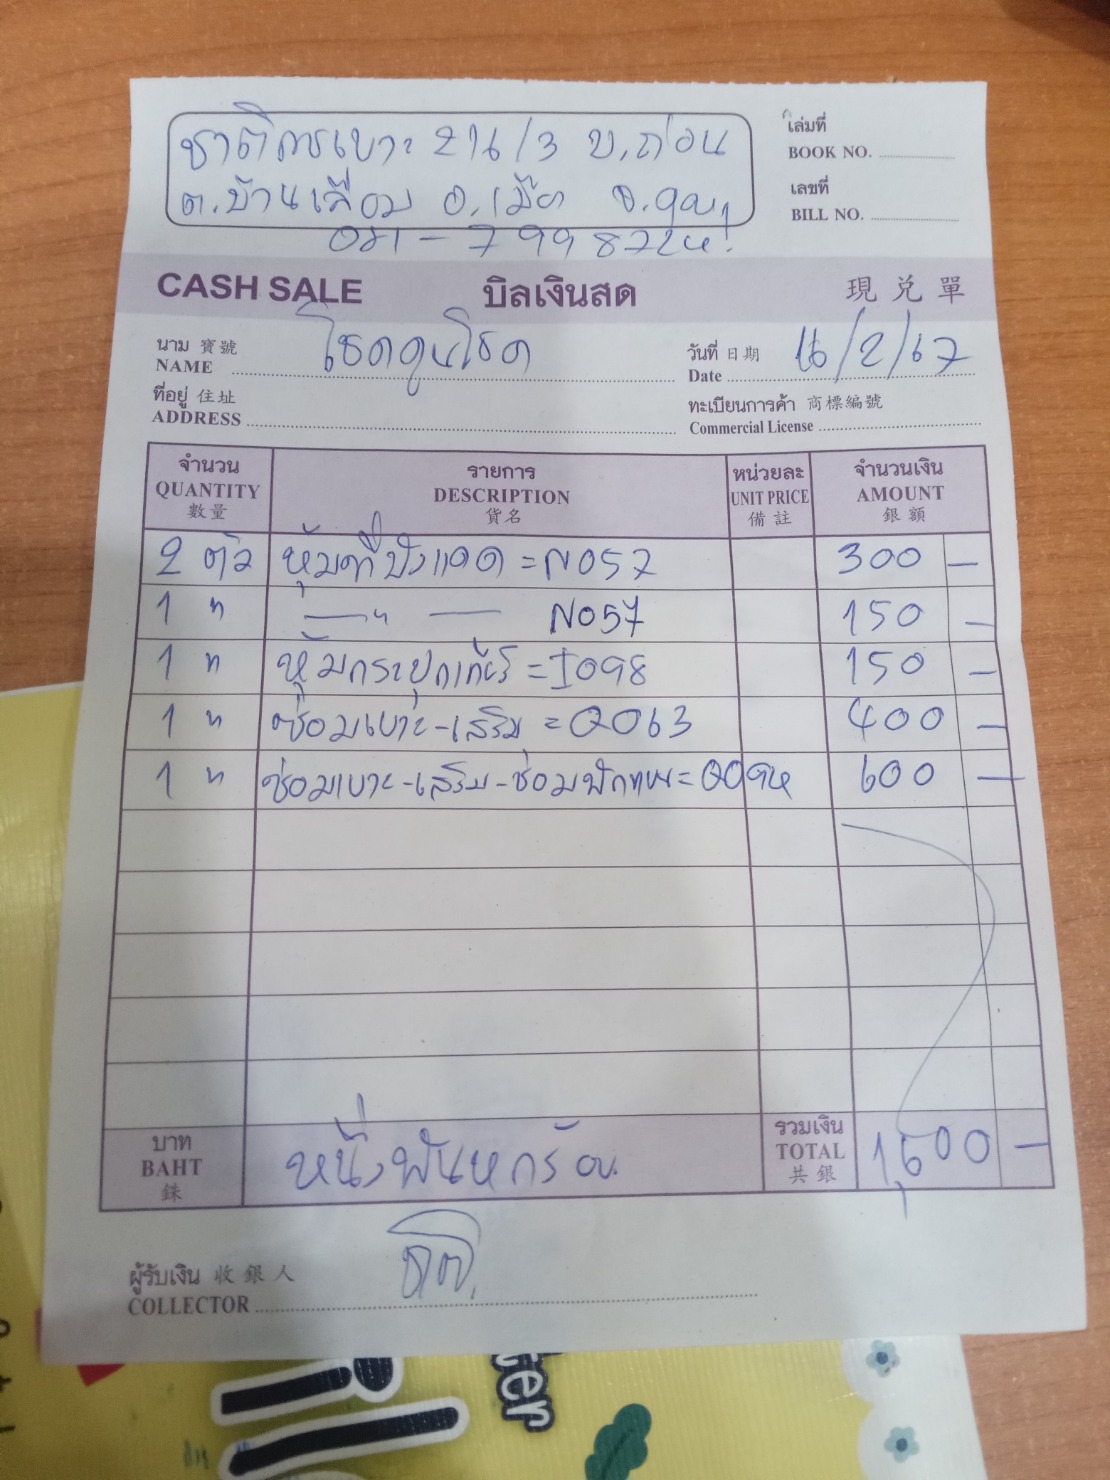 ชาติการเบาะ 214/3 บ.ถ่อน
ต.บ้านเลื่อม อ.เมือง จ.อุดร
081-7998724
เล่มที่
BOOK NO.
เลขที่
BILL NO.
CASH SALE บิลเงินสด 現兌單
นาม 寶號 NAME โชคคูนโชค
วันที่ 日期 Date 16/2/67
ที่อยู่ 住址 ADDRESS
ทะเบียนการค้า 商標編號 Commercial License
จำนวน รายการ หน่วยละ จำนวนเงิน
QUANTITY DESCRIPTION UNIT PRICE AMOUNT
數量 貨名 備註 銀額
2 ตัว หุ้มที่บังแดด = N057 300 —
1 " —"— N057 150 —
1 " หุ้มกระปุกเกียร์ = I098 150 —
1 " ซ่อมเบาะ-เสริม = Q063 400 —
1 " ซ่อมเบาะ-เสริม-ซ่อม 600 —
บาท BAHT 銖 หนึ่งพันหกร้อย รวมเงิน TOTAL 共銀 1,600 —
ผู้รับเงิน 收銀人
COLLECTOR
ter